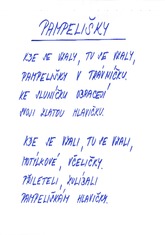 PAMPELIŠKY
KDE SE VZALY, TU SE VZALY,
PAMPELIŠKY V TRÁVNÍČKU.
KE SLUNÍČKU OBRACEJÍ
SVOJI ZLATOU HLAVIČKU.
KDE SE VZALI, TU SE VZALI,
MOTÝLKOVÉ, VČELIČKY.
PŘILETĚLI, ZULÍBALI
PAMPELIŠKÁM HLAVIČKY.